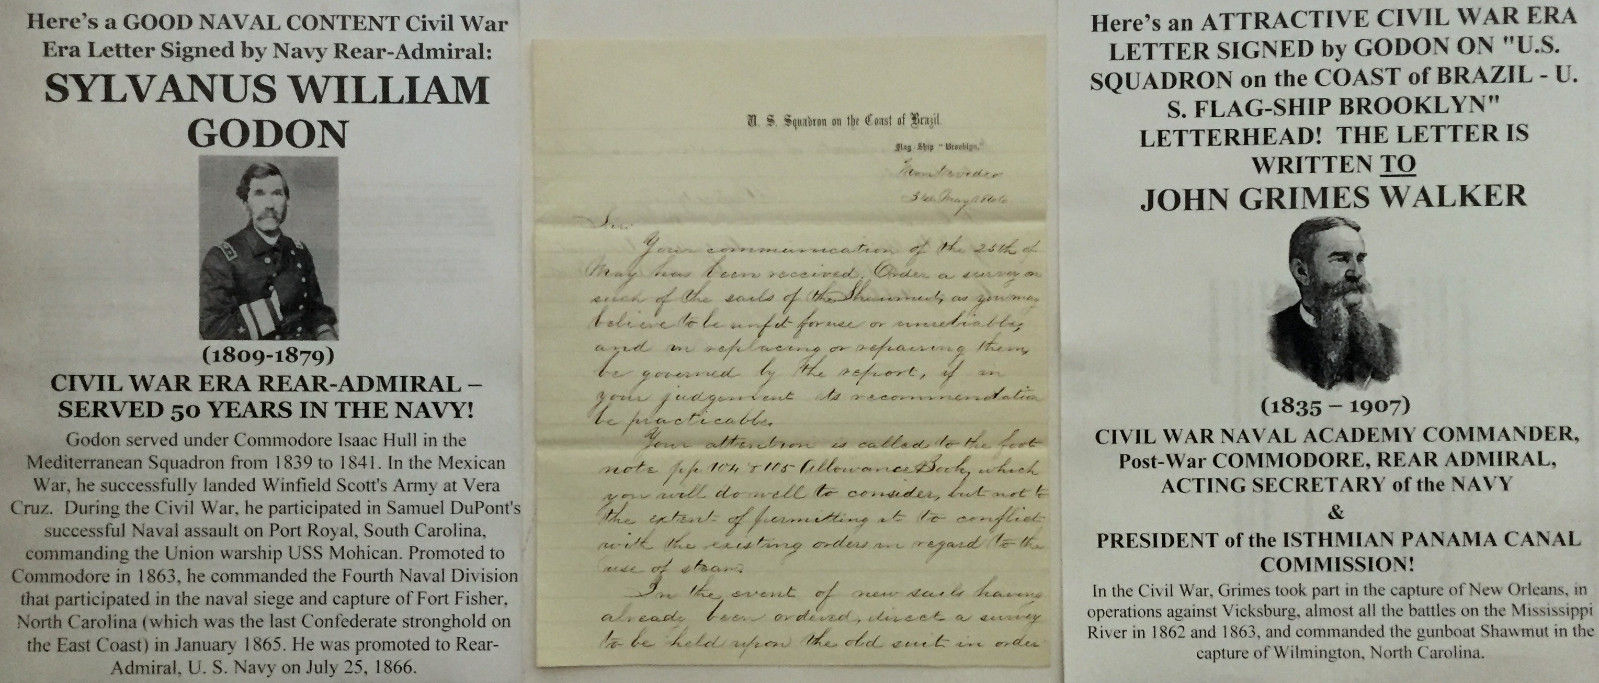 Here's a GOOD NAVAL CONTENT Civil War
Era Letter Signed by Navy Rear-Admiral:
SYLVANUS WILLIAM
GODON
(1809-1879)
CIVIL WAR ERA REAR-ADMIRAL –
SERVED 50 YEARS IN THE NAVY!
Godon served under Commodore Isaac Hull in the
Mediterranean Squadron from 1839 to 1841. In the Mexican
War, he successfully landed Winfield Scott's Army at Vera
Cruz. During the Civil War, he participated in Samuel DuPont's
successful Naval assault on Port Royal, South Carolina,
commanding the Union warship USS Mohican. Promoted to
Commodore in 1863, he commanded the Fourth Naval Division
that participated in the naval siege and capture of Fort Fisher,
North Carolina (which was the last Confederate stronghold on
the East Coast) in January 1865. He was promoted to Rear-
Admiral, U. S. Navy on July 25, 1866.
U. S. Squadron on the Coast of Brazil.
Flag-Ship "Brooklyn,"
Montevideo
May
Sir:
Your communication of the 25th of
May has been received. Order a survey on
such of the sails of the Shawmut, as you may
believe to be unfit for use or unreliable,
and in replacing or repairing them,
be governed by the report, if in
your judgement its recommendation
be practicable.
Your attention is called to the foot
note pp. 104 & 105 Allowance Book, which
you will do well to consider, but not to
the extent of permitting it to conflict
with the existing orders in regard to the
use of steam.
In the event of new sails having
already been ordered, direct a survey
to be held upon the old suit in order
Here's an ATTRACTIVE CIVIL WAR ERA
LETTER SIGNED by GODON ON "U.S.
SQUADRON on the COAST of BRAZIL - U.
S. FLAG-SHIP BROOKLYN"
LETTERHEAD! THE LETTER IS
WRITTEN TO
JOHN GRIMES WALKER
(1835 – 1907)
CIVIL WAR NAVAL ACADEMY COMMANDER,
Post-War COMMODORE, REAR ADMIRAL,
ACTING SECRETARY of the NAVY
&
PRESIDENT of the ISTHMIAN PANAMA CANAL
COMMISSION!
In the Civil War, Grimes took part in the capture of New Orleans, in
operations against Vicksburg, almost all the battles on the Mississippi
River in 1862 and 1863, and commanded the gunboat Shawmut in the
capture of Wilmington, North Carolina.